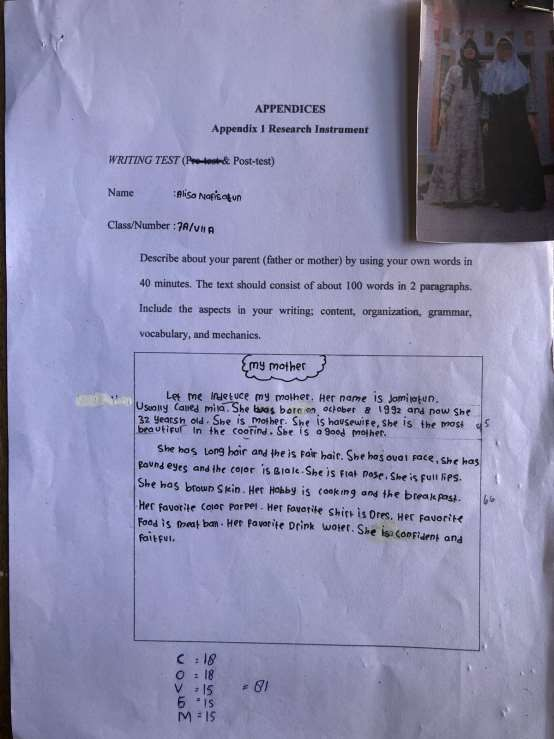 APPENDICES
Appendix 1 Research Instrument
WRITING TEST (Pre-test & Post-test)
Name :Alisa Nafisatun
Class/Number : 7A/VII A
Describe about your parent (father or mother) by using your own words in
40 minutes. The text should consist of about 100 words in 2 paragraphs.
Include the aspects in your writing; content, organization, grammar,
vocabulary, and mechanics.
my mother
Let me indetuce my mother. Her name is Jamilatun.
Usually called mila. She was born on october 8 1992 and now she
32 yearsh old. She is mother. She is hausewife, she is the most
beautiful in the coorind. She is a good mother.
45
She has Long hair and the is Fair hair. She has oval Face, she has
Round eyes and the color is Blalc. She is Flat nose. She is full lips.
She has brown skin. Her Hobby is cooking and the breakpast.
66
Her favorite color parpel. Her favorite shirt is Dres. Her favorite
Food is meat ban. Her favorite Drink water. She is confident and
faitful.
C : 18
O : 18
V = 15 = 81
G = 15
M = 15